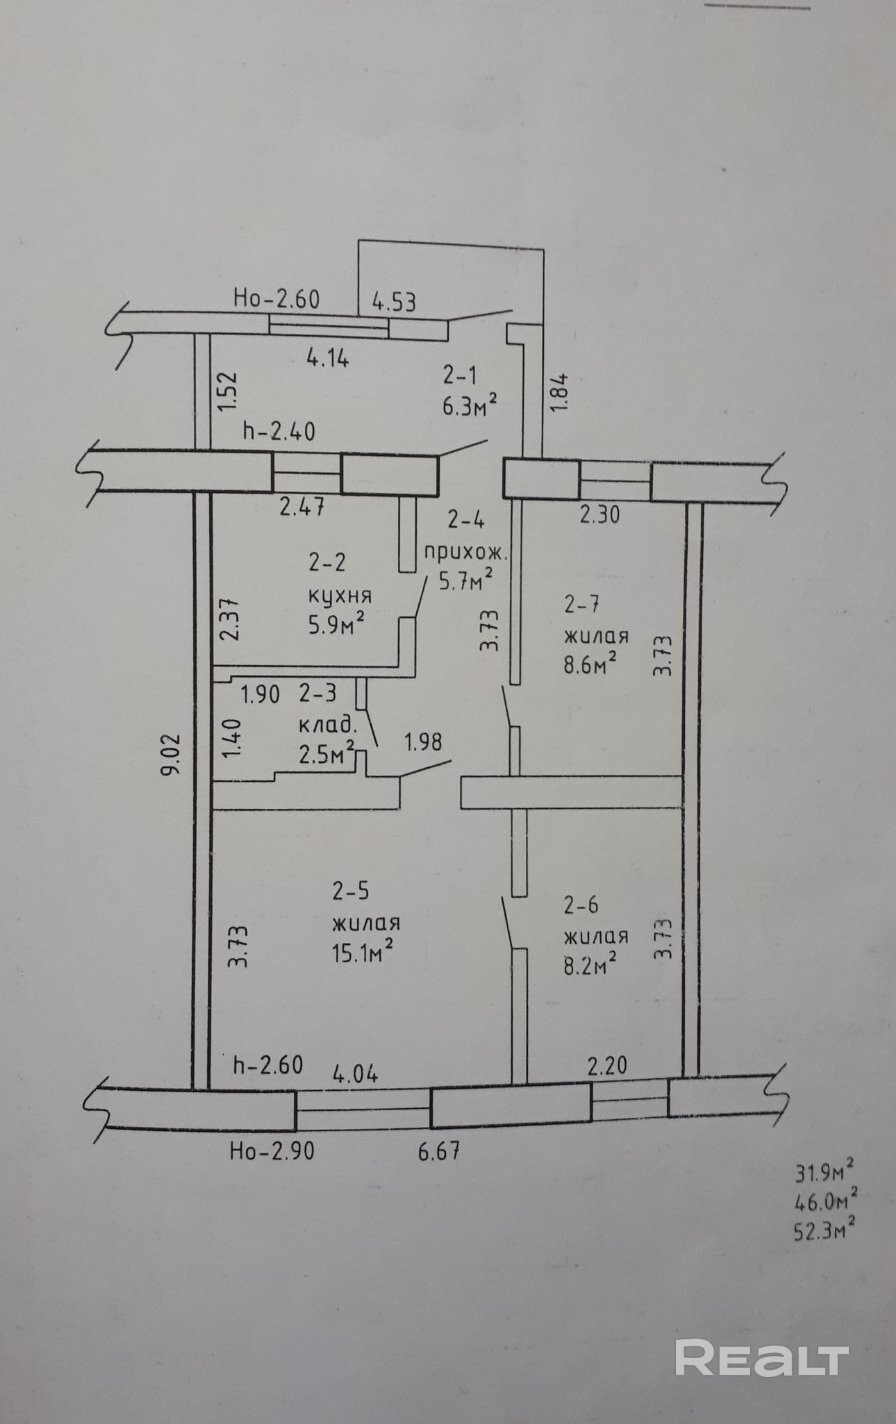 Но-2.60
4.53
4.14
1.52
2-1
6.3м²
1.84
h-2.40
2.47
2-4
прихож.
5.7м²
2.30
2-2
кухня
5.9м²
2.37
3.73
2-7
жилая
8.6м²
3.73
1.90
2-3
клад.
2.5м²
1.40
1.98
9.02
2-5
жилая
15.1м²
3.73
2-6
жилая
8.2м²
3.73
h-2.60
4.04
2.20
Но-2.90
6.67
31.9м²
46.0м²
52.3м²
REALT